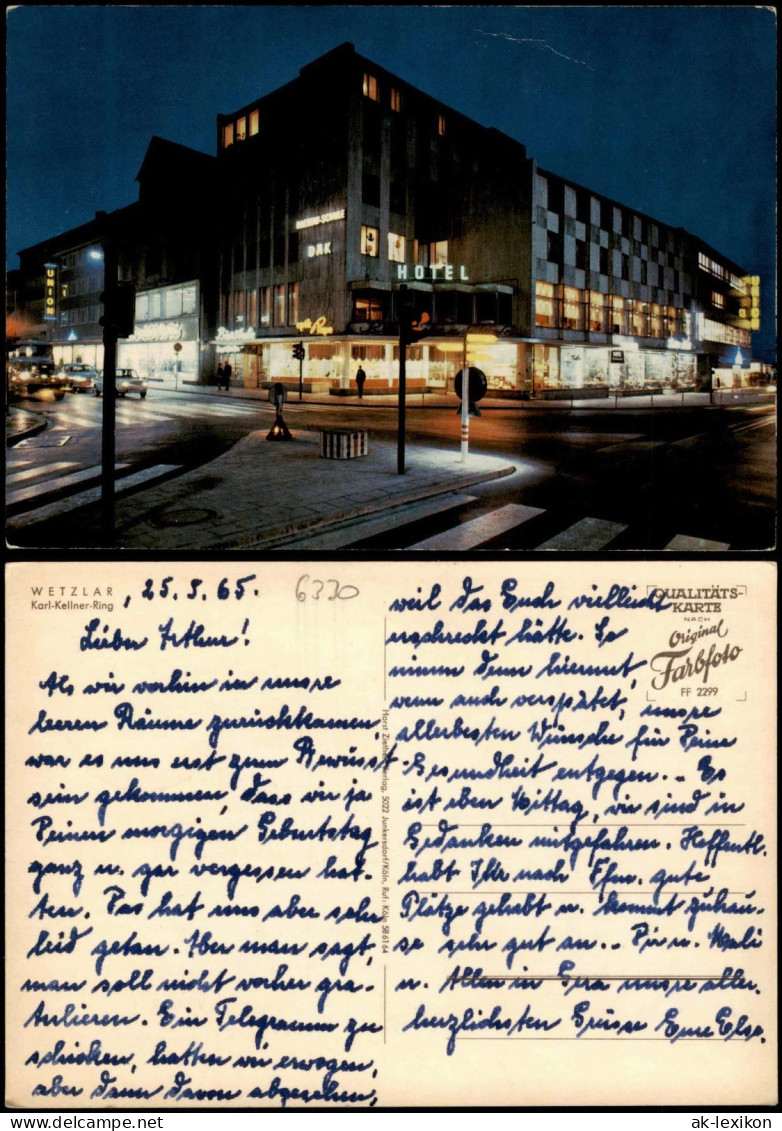 UNION
DAK
HOTEL
WETZLAR
Karl-Kellner-Ring
, 25.5.65.
6330
Lieber Arthur!
Als wir vorhin in unsre
leeren Räume zurückkamen,
war es uns erst zum Bewusst
sein gekommen, dass wir ja
Deinen morgigen Geburtstag
ganz u. gar vergessen hat-
ten. Das hat uns aber sehr
leid getan. Aber man sagt,
man soll nicht vorher gra-
tulieren. Ein Telegramm zu
schicken, hatten wir erwogen,
aber dann davon abgesehen,
weil das Euch vielleicht
erschreckt hätte. So
nimm denn hiermit,
wenn auch verspätet, unsre
allerbesten Wünsche für Deine
Gesundheit entgegen. - Es
ist eben Mittag, wir sind in
Gedanken mitgefahren. Hoffentl.
habt Ihr nach Ffm. gute
Plätze gehabt u. kommt zuhau-
se sehr gut an. - Dir u. Wali
u. Allen in Gera unsre aller-
herzlichsten Grüsse Eure Else.
QUALITÄTS-
KARTE
NACH
Original
Farbfoto
FF 2299
Horst Ziethen Verlag, 5022 Junkersdorf/Köln, Ruf: Köln 586164
ak-lexikon